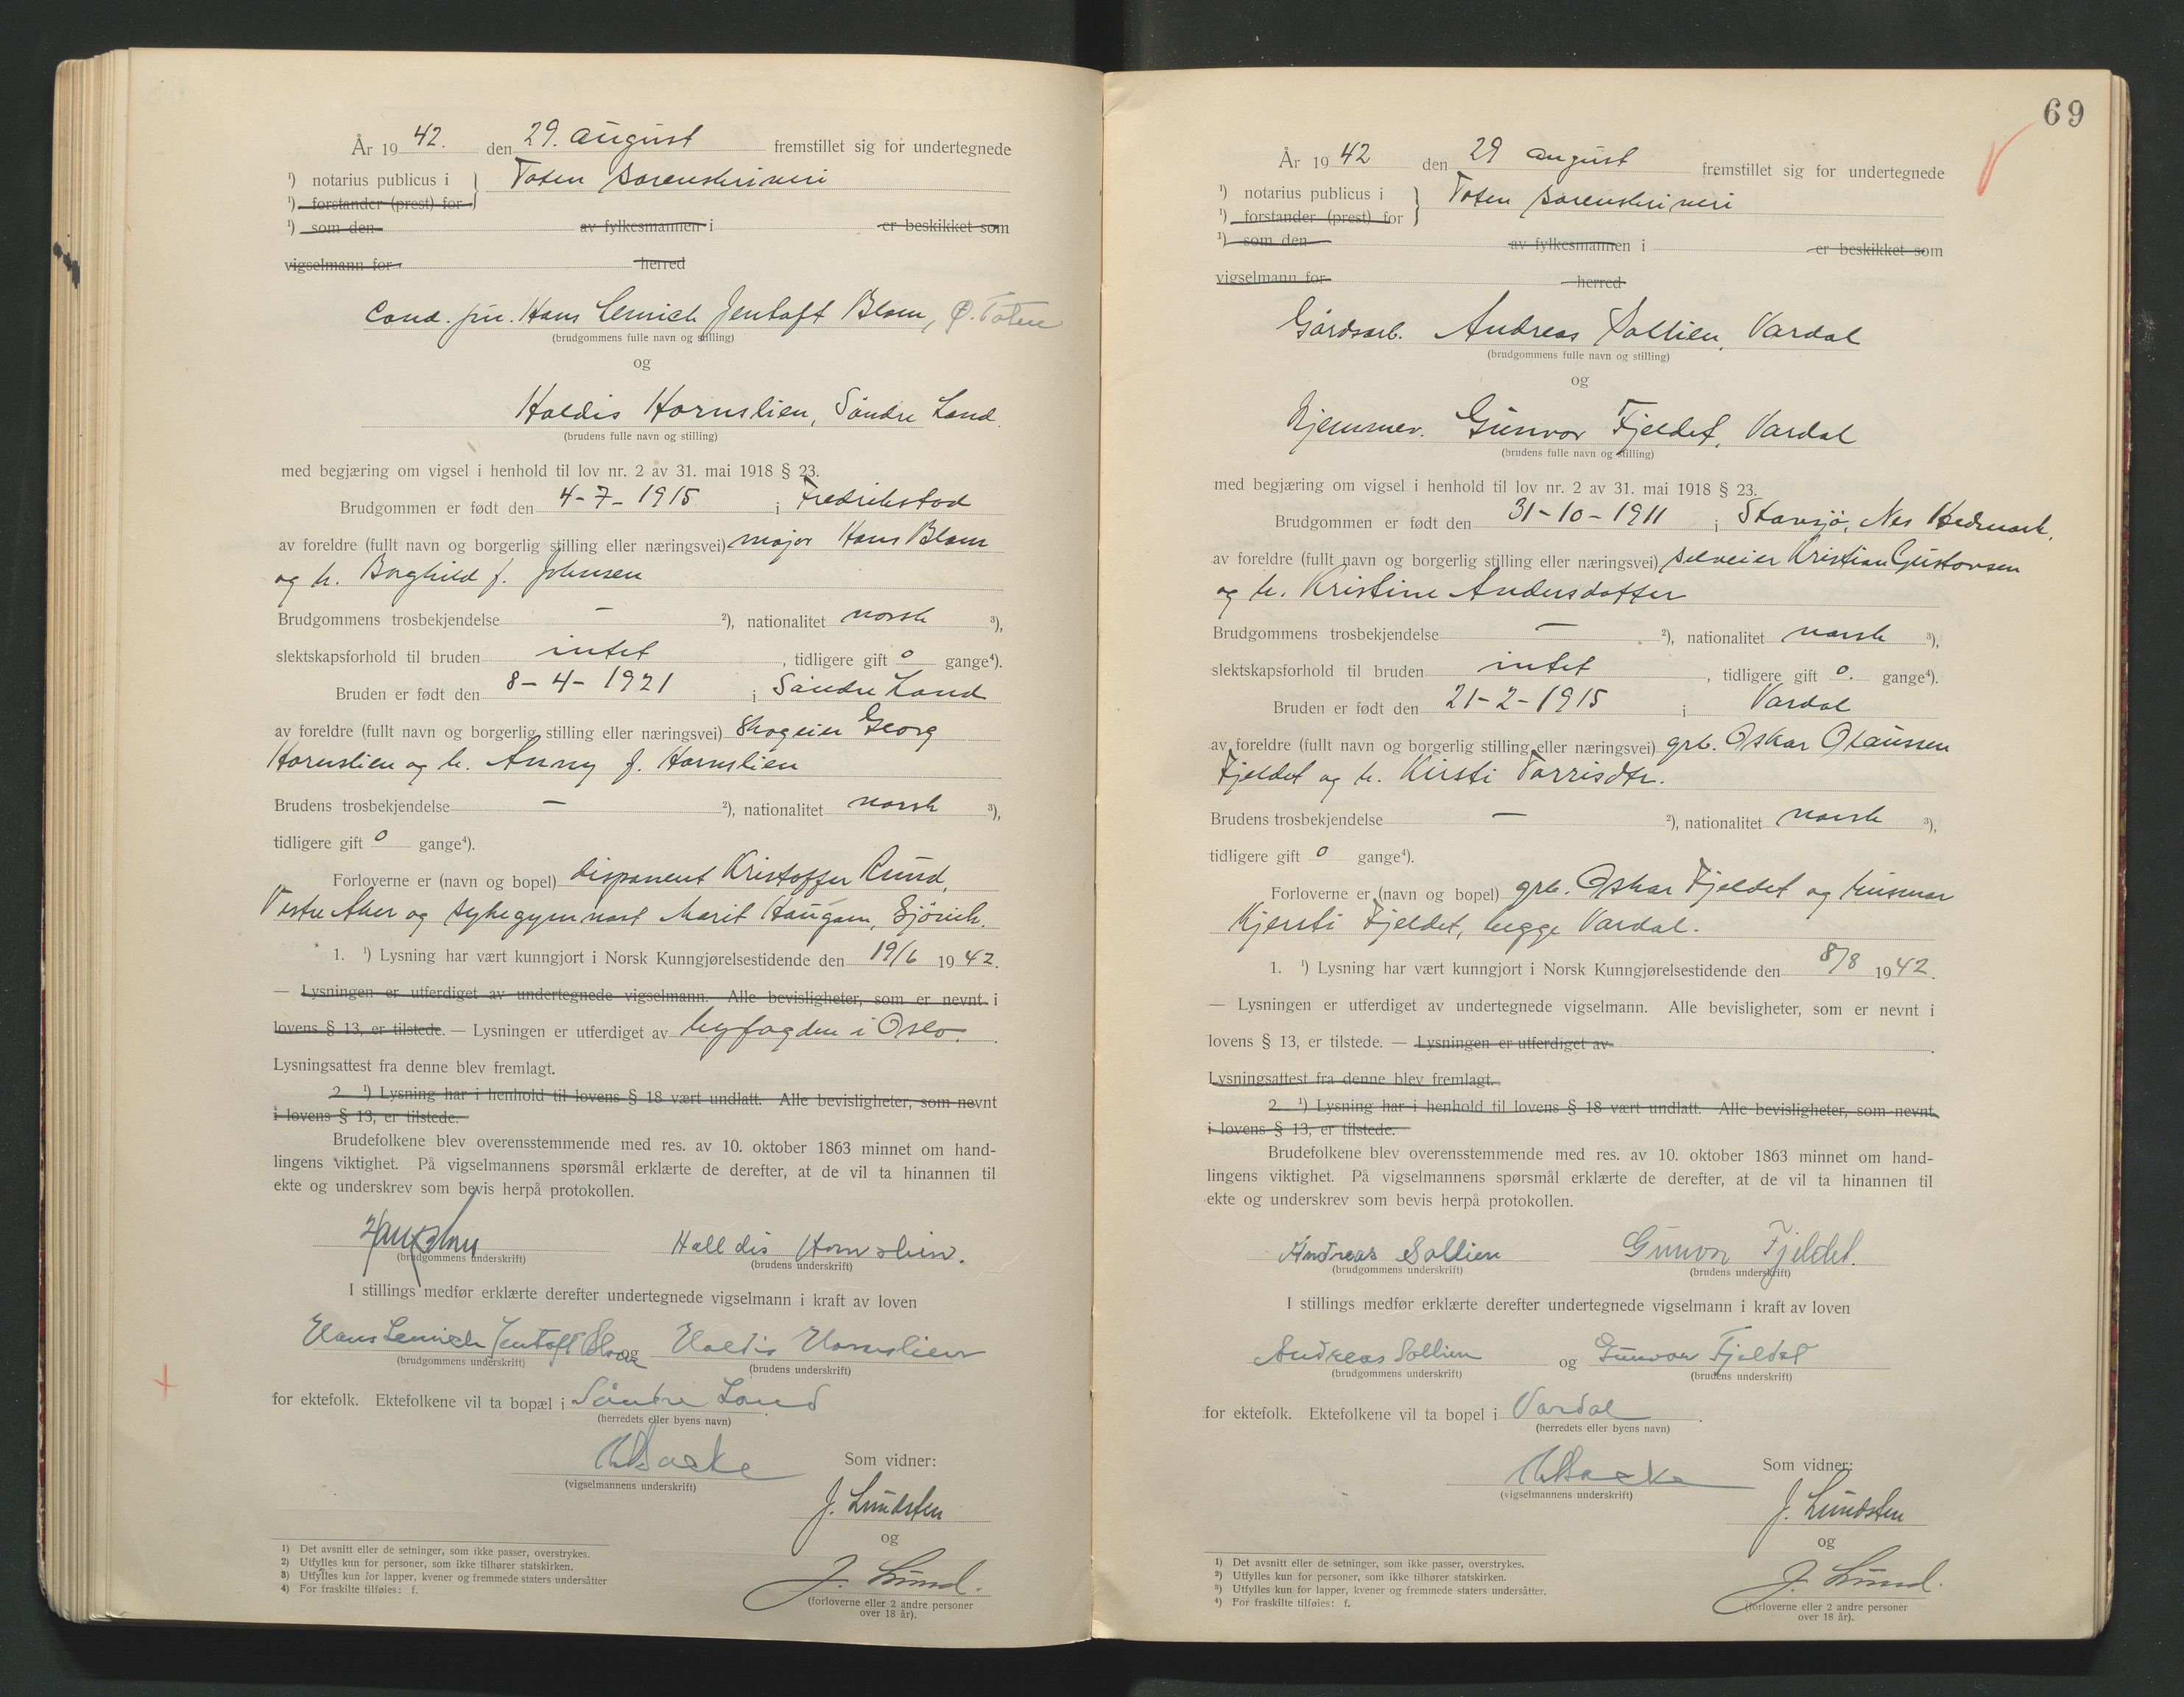 År 19 42. den 29. august fremstillet sig for undertegnede
¹) notarius publicus i } Toten sorenskriveri
¹) forstander (prest) for
¹) som den av fylkesmannen i er beskikket som
vigselmann for herred
Cand. jur. Hans Lemich Jentoft Blom, Ø. Toten
(brudgommens fulle navn og stilling)
og
Haldis Hornslien, Søndre Land.
(brudens fulle navn og stilling)
med begjæring om vigsel i henhold til lov nr. 2 av 31. mai 1918 § 23.
Brudgommen er født den 4-7-1915 i Fredrikstad
av foreldre (fullt navn og borgerlig stilling eller næringsvei) major Hans Blom
og h. Borghild f. Johnsen
Brudgommens trosbekjendelse — ²), nationalitet norsk ³),
slektskapsforhold til bruden intet, tidligere gift 0 gange⁴).
Bruden er født den 8-4-1921 i Søndre Land
av foreldre (fullt navn og borgerlig stilling eller næringsvei) Skogeier Georg
Hornslien og h. Anny f. Hornslien
Brudens trosbekjendelse — ²), nationalitet norsk ³),
tidligere gift 0 gange⁴).
Forloverne er (navn og bopel) disponent Kristoffer Rund,
Vestre Aker og sykegymnast Marit Haugom, Gjövik.
1. ¹) Lysning har vært kunngjort i Norsk Kunngjørelsestidende den 19/6 1942.
— Lysningen er utferdiget av undertegnede vigselmann. Alle bevisligheter, som er nevnt i
lovens § 13, er tilstede. — Lysningen er utferdiget av byfogden i Oslo.
Lysningsattest fra denne blev fremlagt.
2. ¹) Lysning har i henhold til lovens § 18 vært undlatt. Alle bevisligheter, som nevnt
i lovens § 13, er tilstede.
Brudefolkene blev overensstemmende med res. av 10. oktober 1863 minnet om hand-
lingens viktighet. På vigselmannens spørsmål erklærte de derefter, at de vil ta hinannen til
ekte og underskrev som bevis herpå protokollen.
Hans Blom Halldis Hornslien.
(brudgommens underskrift) (brudens underskrift)
I stillings medfør erklærte derefter undertegnede vigselmann i kraft av loven
Hans Lemich Jentoft Blom og Haldis Hornslien
(brudgommens underskrift) (brudens underskrift)
for ektefolk. Ektefolkene vil ta bopæl i Söndre Land
(herredets eller byens navn)
Som vidner:
(vigselmannens underskrift)
J. Lundsten
og
J. Lund.
(forloverne eller 2 andre personer
over 18 år).
1) Det avsnitt eller de setninger, som ikke passer, overstrykes.
2) Utfylles kun for personer, som ikke tilhører statskirken.
3) Utfylles kun for lapper, kvener og fremmede staters undersåtter
4) For fraskilte tilføies: f.
69
År 19 42 den 29 august fremstillet sig for undertegnede
¹) notarius publicus i } Toten sorenskriveri
¹) forstander (prest) for
¹) som den av fylkesmannen i er beskikket som
vigselmann for herred
Gårdsarb. Andreas Sollien, Vardal
(brudgommens fulle navn og stilling)
og
Hjemmev. Gunvor Fjeldet, Vardal
(brudens fulle navn og stilling)
med begjæring om vigsel i henhold til lov nr. 2 av 31. mai 1918 § 23.
Brudgommen er født den 31-10-1911 i Stavsjö, Nes Hedmark,
av foreldre (fullt navn og borgerlig stilling eller næringsvei) selveier Kristian Gustavsen
og h. Kristine Andersdatter
Brudgommens trosbekjendelse — ²), nationalitet norsk ³),
slektskapsforhold til bruden intet, tidligere gift 0. gange⁴).
Bruden er født den 21-2-1915 i Vardal
av foreldre (fullt navn og borgerlig stilling eller næringsvei) grb. Oskar Olaussen
Fjeldet og h. Kirsti Torrisdtr.
Brudens trosbekjendelse — ²), nationalitet norsk ³),
tidligere gift 0 gange⁴).
Forloverne er (navn og bopel) grb. Oskar Fjeldet og husmor
Kjersti Fjeldet, begge Vardal.
1. ¹) Lysning har vært kunngjort i Norsk Kunngjørelsestidende den 8/8 1942.
— Lysningen er utferdiget av undertegnede vigselmann. Alle bevisligheter, som er nevnt i
lovens § 13, er tilstede. — Lysningen er utferdiget av
Lysningsattest fra denne blev fremlagt.
2. ¹) Lysning har i henhold til lovens § 18 vært undlatt. Alle bevisligheter, som nevnt
i lovens § 13, er tilstede.
Brudefolkene blev overensstemmende med res. av 10. oktober 1863 minnet om hand-
lingens viktighet. På vigselmannens spørsmål erklærte de derefter, at de vil ta hinannen til
ekte og underskrev som bevis herpå protokollen.
Andreas Sollien Gunvor Fjeldet.
(brudgommens underskrift) (brudens underskrift)
I stillings medfør erklærte derefter undertegnede vigselmann i kraft av loven
Andreas Sollien og Gunvor Fjeldet
(brudgommens underskrift) (brudens underskrift)
for ektefolk. Ektefolkene vil ta bopel i Vardal.
(herredets eller byens navn)
Som vidner:
(vigselmannens underskrift)
J. Lundsten
og
J. Lund.
(forloverne eller 2 andre personer
over 18 år).
1) Det avsnitt eller de setninger, som ikke passer, overstrykes.
2) Utfylles kun for personer, som ikke tilhører statskirken.
3) Utfylles kun for lapper, kvener og fremmede staters undersåtter.
4) For fraskilte tilføies: f.